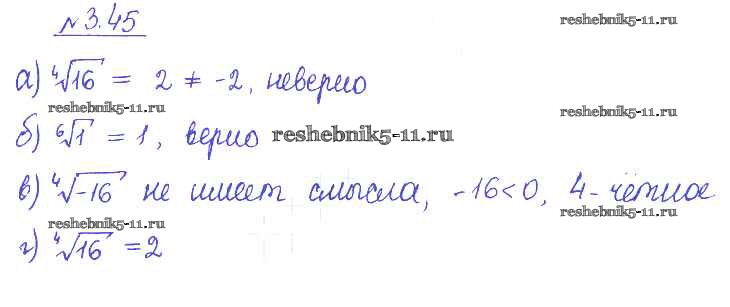 №3.45
reshebnik5-11.ru
а) ⁴√16 = 2 ≠ -2, неверно
reshebnik5-11.ru
reshebnik5-11.ru
б) ⁶√1 = 1, верно reshebnik5-11.ru
в) ⁴√-16 не имеет смысла, -16<0, 4-чётное
reshebnik5-11.ru
reshebnik5-11.ru
г) ⁴√16 = 2